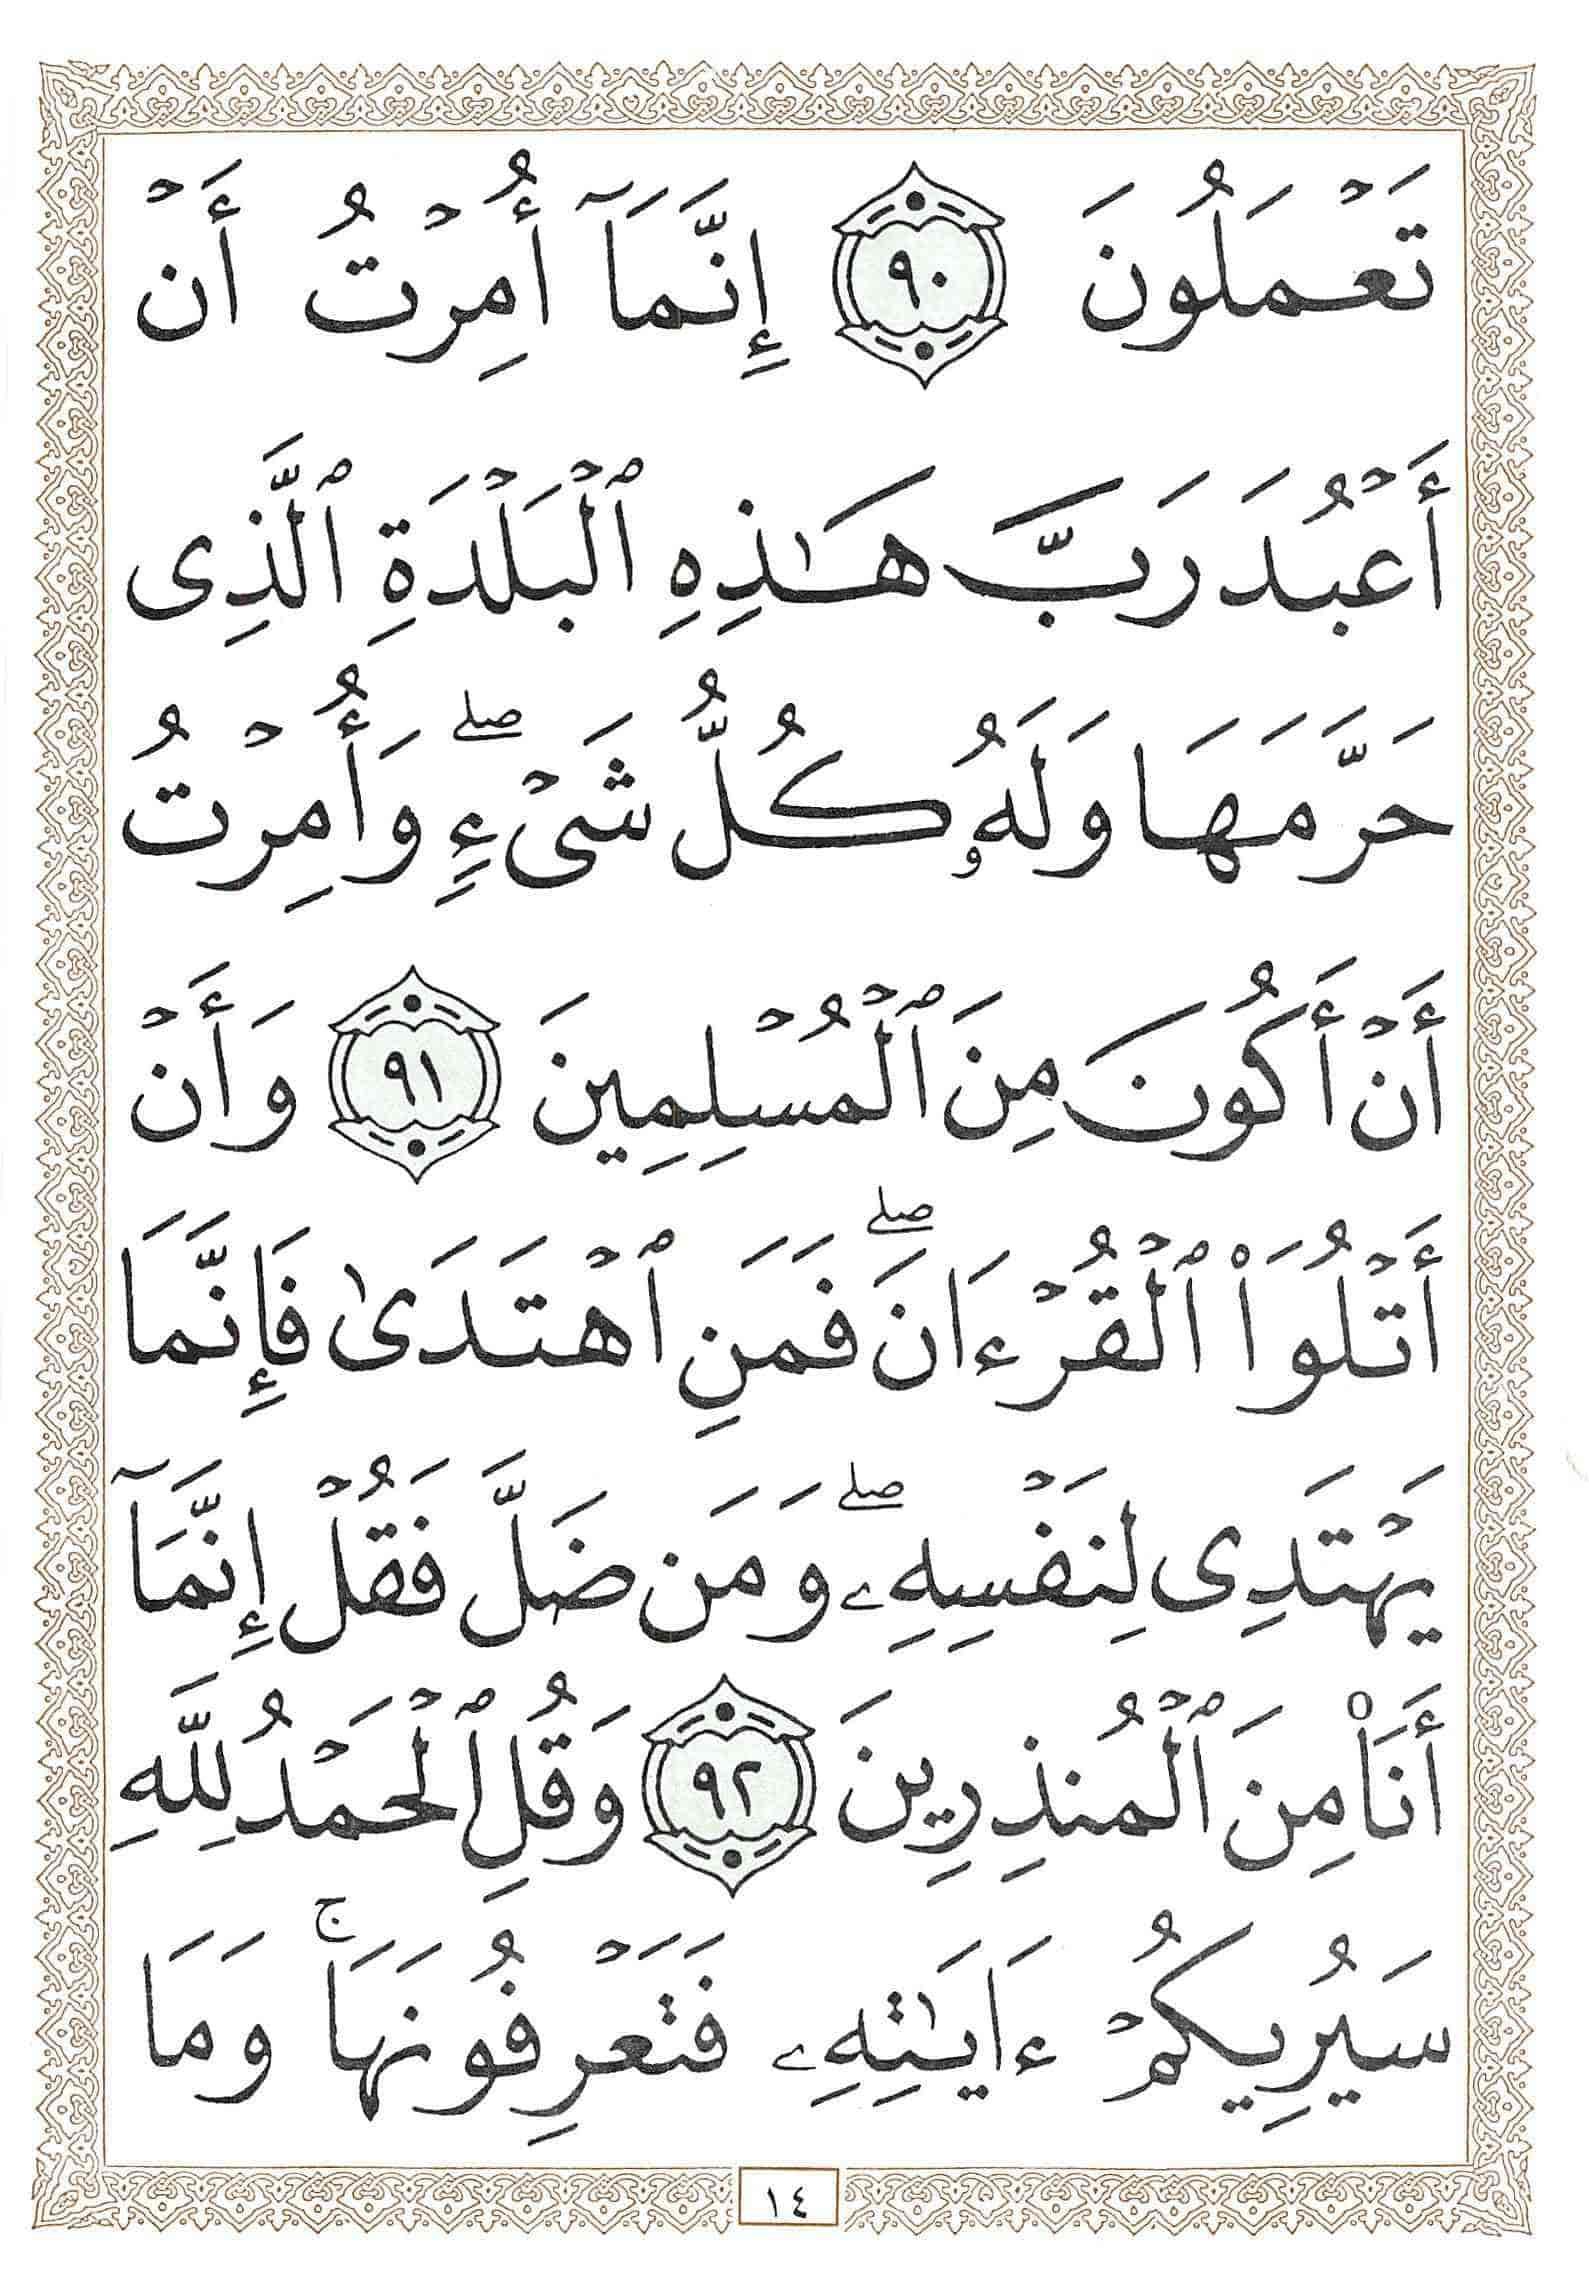 تَعْمَلُونَ ٩٠ إِنَّمَآ أُمِرْتُ أَنْ
أَعْبُدَ رَبَّ هَٰذِهِ ٱلْبَلْدَةِ ٱلَّذِى
حَرَّمَهَا وَلَهُۥ كُلُّ شَىْءٍ ۖ وَأُمِرْتُ
أَنْ أَكُونَ مِنَ ٱلْمُسْلِمِينَ ٩١ وَأَنْ
أَتْلُوَا۟ ٱلْقُرْءَانَ ۖ فَمَنِ ٱهْتَدَىٰ فَإِنَّمَا
يَهْتَدِى لِنَفْسِهِۦ ۖ وَمَن ضَلَّ فَقُلْ إِنَّمَآ
أَنَا۠ مِنَ ٱلْمُنذِرِينَ ٩٢ وَقُلِ ٱلْحَمْدُ لِلَّهِ
سَيُرِيكُمْ ءَايَٰتِهِۦ فَتَعْرِفُونَهَا ۚ وَمَا
١٤